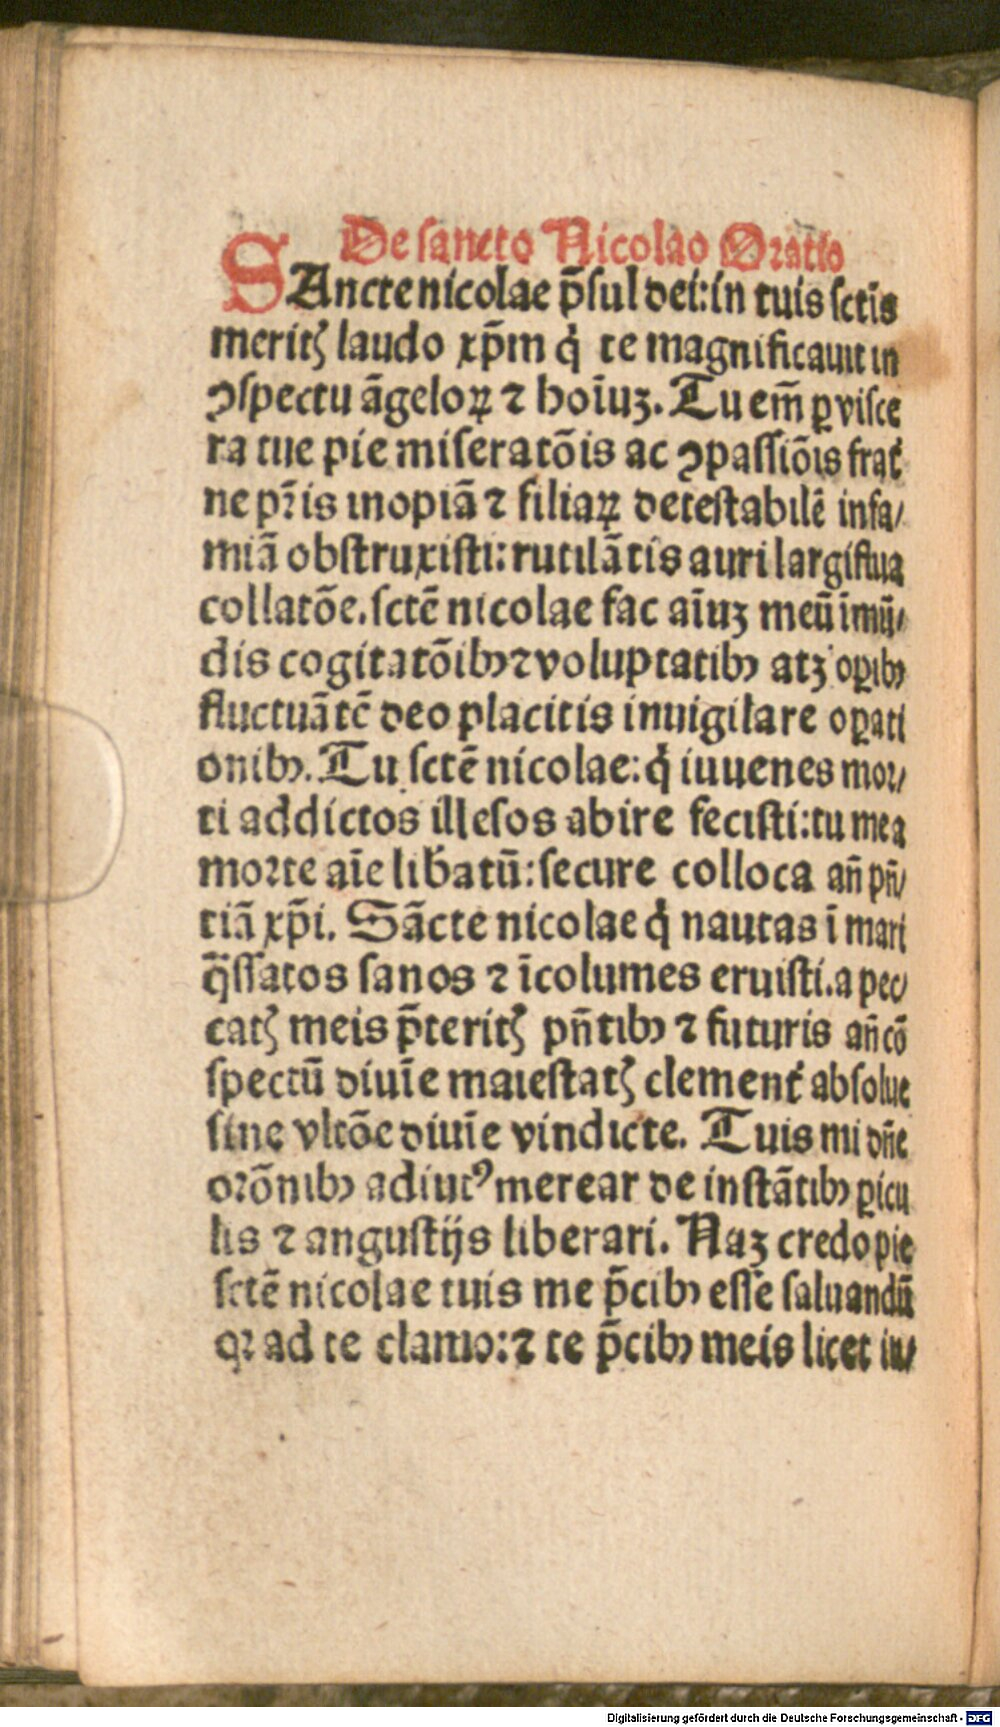 De sancto Nicolao Oratio
SAncte nicolae p̄sul dei: in tuis sctīs
meritꝭ laudo xp̄m q̇ te magnificauit in
ꝯspectu āgeloꝝ ⁊ hoīuꝫ. Tu em̄ ꝑ visce
ra tue pie miseratōis ac ꝯpassiōis frat̄
ne pr̄is inopiā ⁊ filiaꝝ detestabilē infa⸗
miā obstruxisti: rutilātis auri largiflua
collatōe. sctē nicolae fac aīuꝫ meū īmū⸗
dis cogitatōibꝰ ⁊ voluptatibꝰ atꝫ oꝑibꝰ
fluctuātē deo placitis inuigilare oꝑati
onibꝰ. Tu sctē nicolae: q̇ iuuenes mor⸗
ti addictos illesos abire fecisti: tu mea
morte aīe lib̄atū: secure colloca an̄ pn̄⸗
tiā xp̄i. Sācte nicolae q̇ nautas ī mari
q̄ssatos sanos ⁊ īcolumes eruisti. a pec⸗
catꝭ meis p̄teritꝭ pn̄tibꝰ ⁊ futuris an̄ cō
spectū diuīe maiestatꝭ clement̄ absolue
sine vltōe diuīe vindicte. Tuis mi dn̄e
orōnibꝰ adiutꝰ merear de instātibꝰ ꝑicu
lis ⁊ angustijs liberari. Naꝫ credo pie
sctē nicolae tuis me p̄cibꝰ esse saluandū
qꝛ ad te clamo: ⁊ te p̄cibꝰ meis licet in⸗
Digitalisierung gefördert durch die Deutsche Forschungsgemeinschaft - DFG